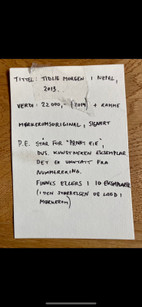 TITTEL: TIDLIG MORGEN I NEPAL,
2019.
VERDI: 22.000,- (2019) + RAMME
MØRKEROMSORIGINAL, SIGNERT
P.E. STÅR FOR "PRIVAT EIE",
DVS. KUNSTNEREN EKSEMPLAR
DET ER UNNTATT FRA
NUMMERERING.
FINNES ELLERS I 10 EKSEMPLARER
(I DEN STØRRELSEN OG LAGD I
MØRKEROM)